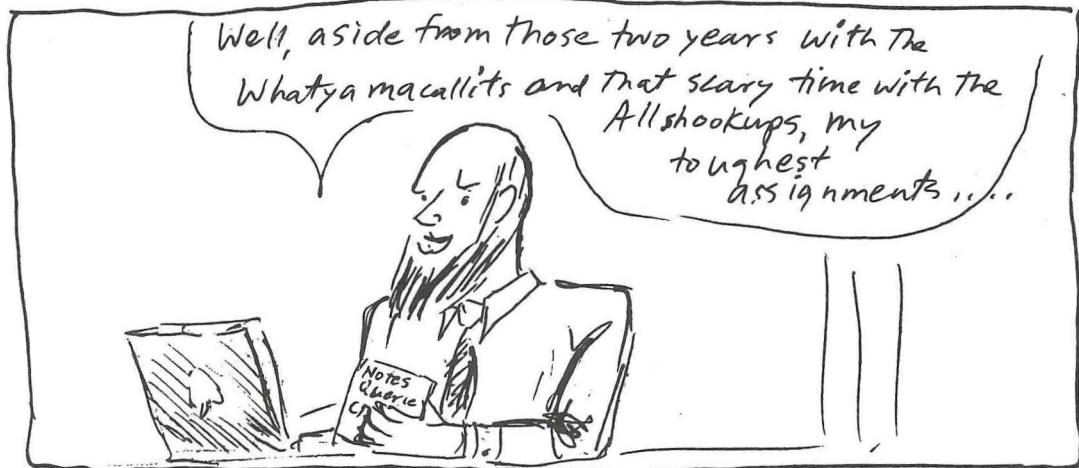 Well, aside from those two years with the
Whatyamacallits and that scary time with the
Allshookups, my
toughest
assignments.....
Notes
Querie